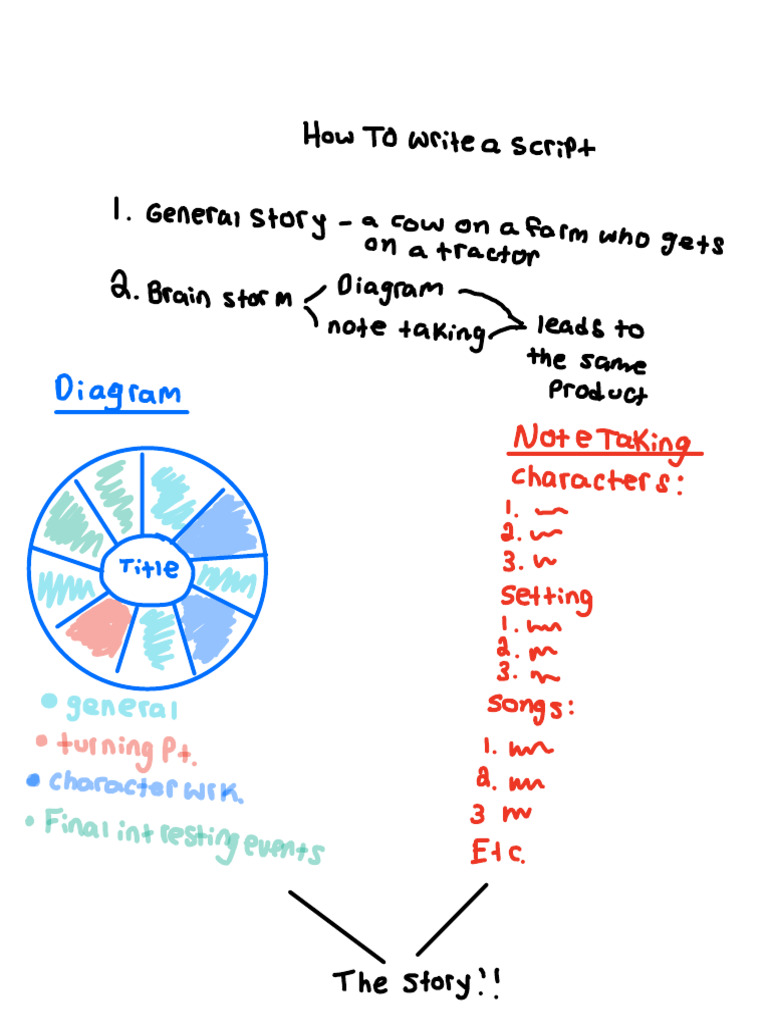 How To write a script
1. General story - a cow on a farm who gets
on a tractor
2. Brain storm
Diagram
note taking
leads to
the same
product
Diagram
Title
general
turning Pt.
character wrk.
Final intresting events
Note Taking
characters:
1.
2.
3.
Setting
1.
2.
3.
Songs:
1.
2.
3
Etc.
The story!!